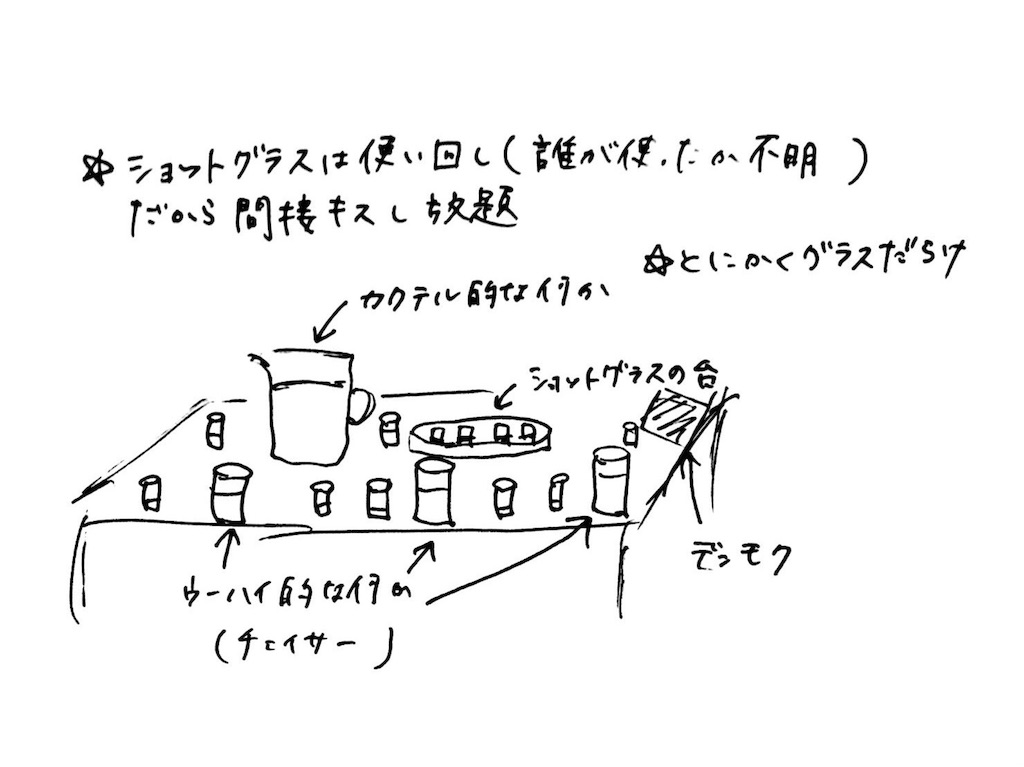 ☆ショットグラスは使い回し(誰が使ったか不明)
だから間接キスし放題
☆とにかくグラスだらけ
カクテル的な何か
ショットグラスの台
デンモク
ウーハイ的な何か
(チェイサー)